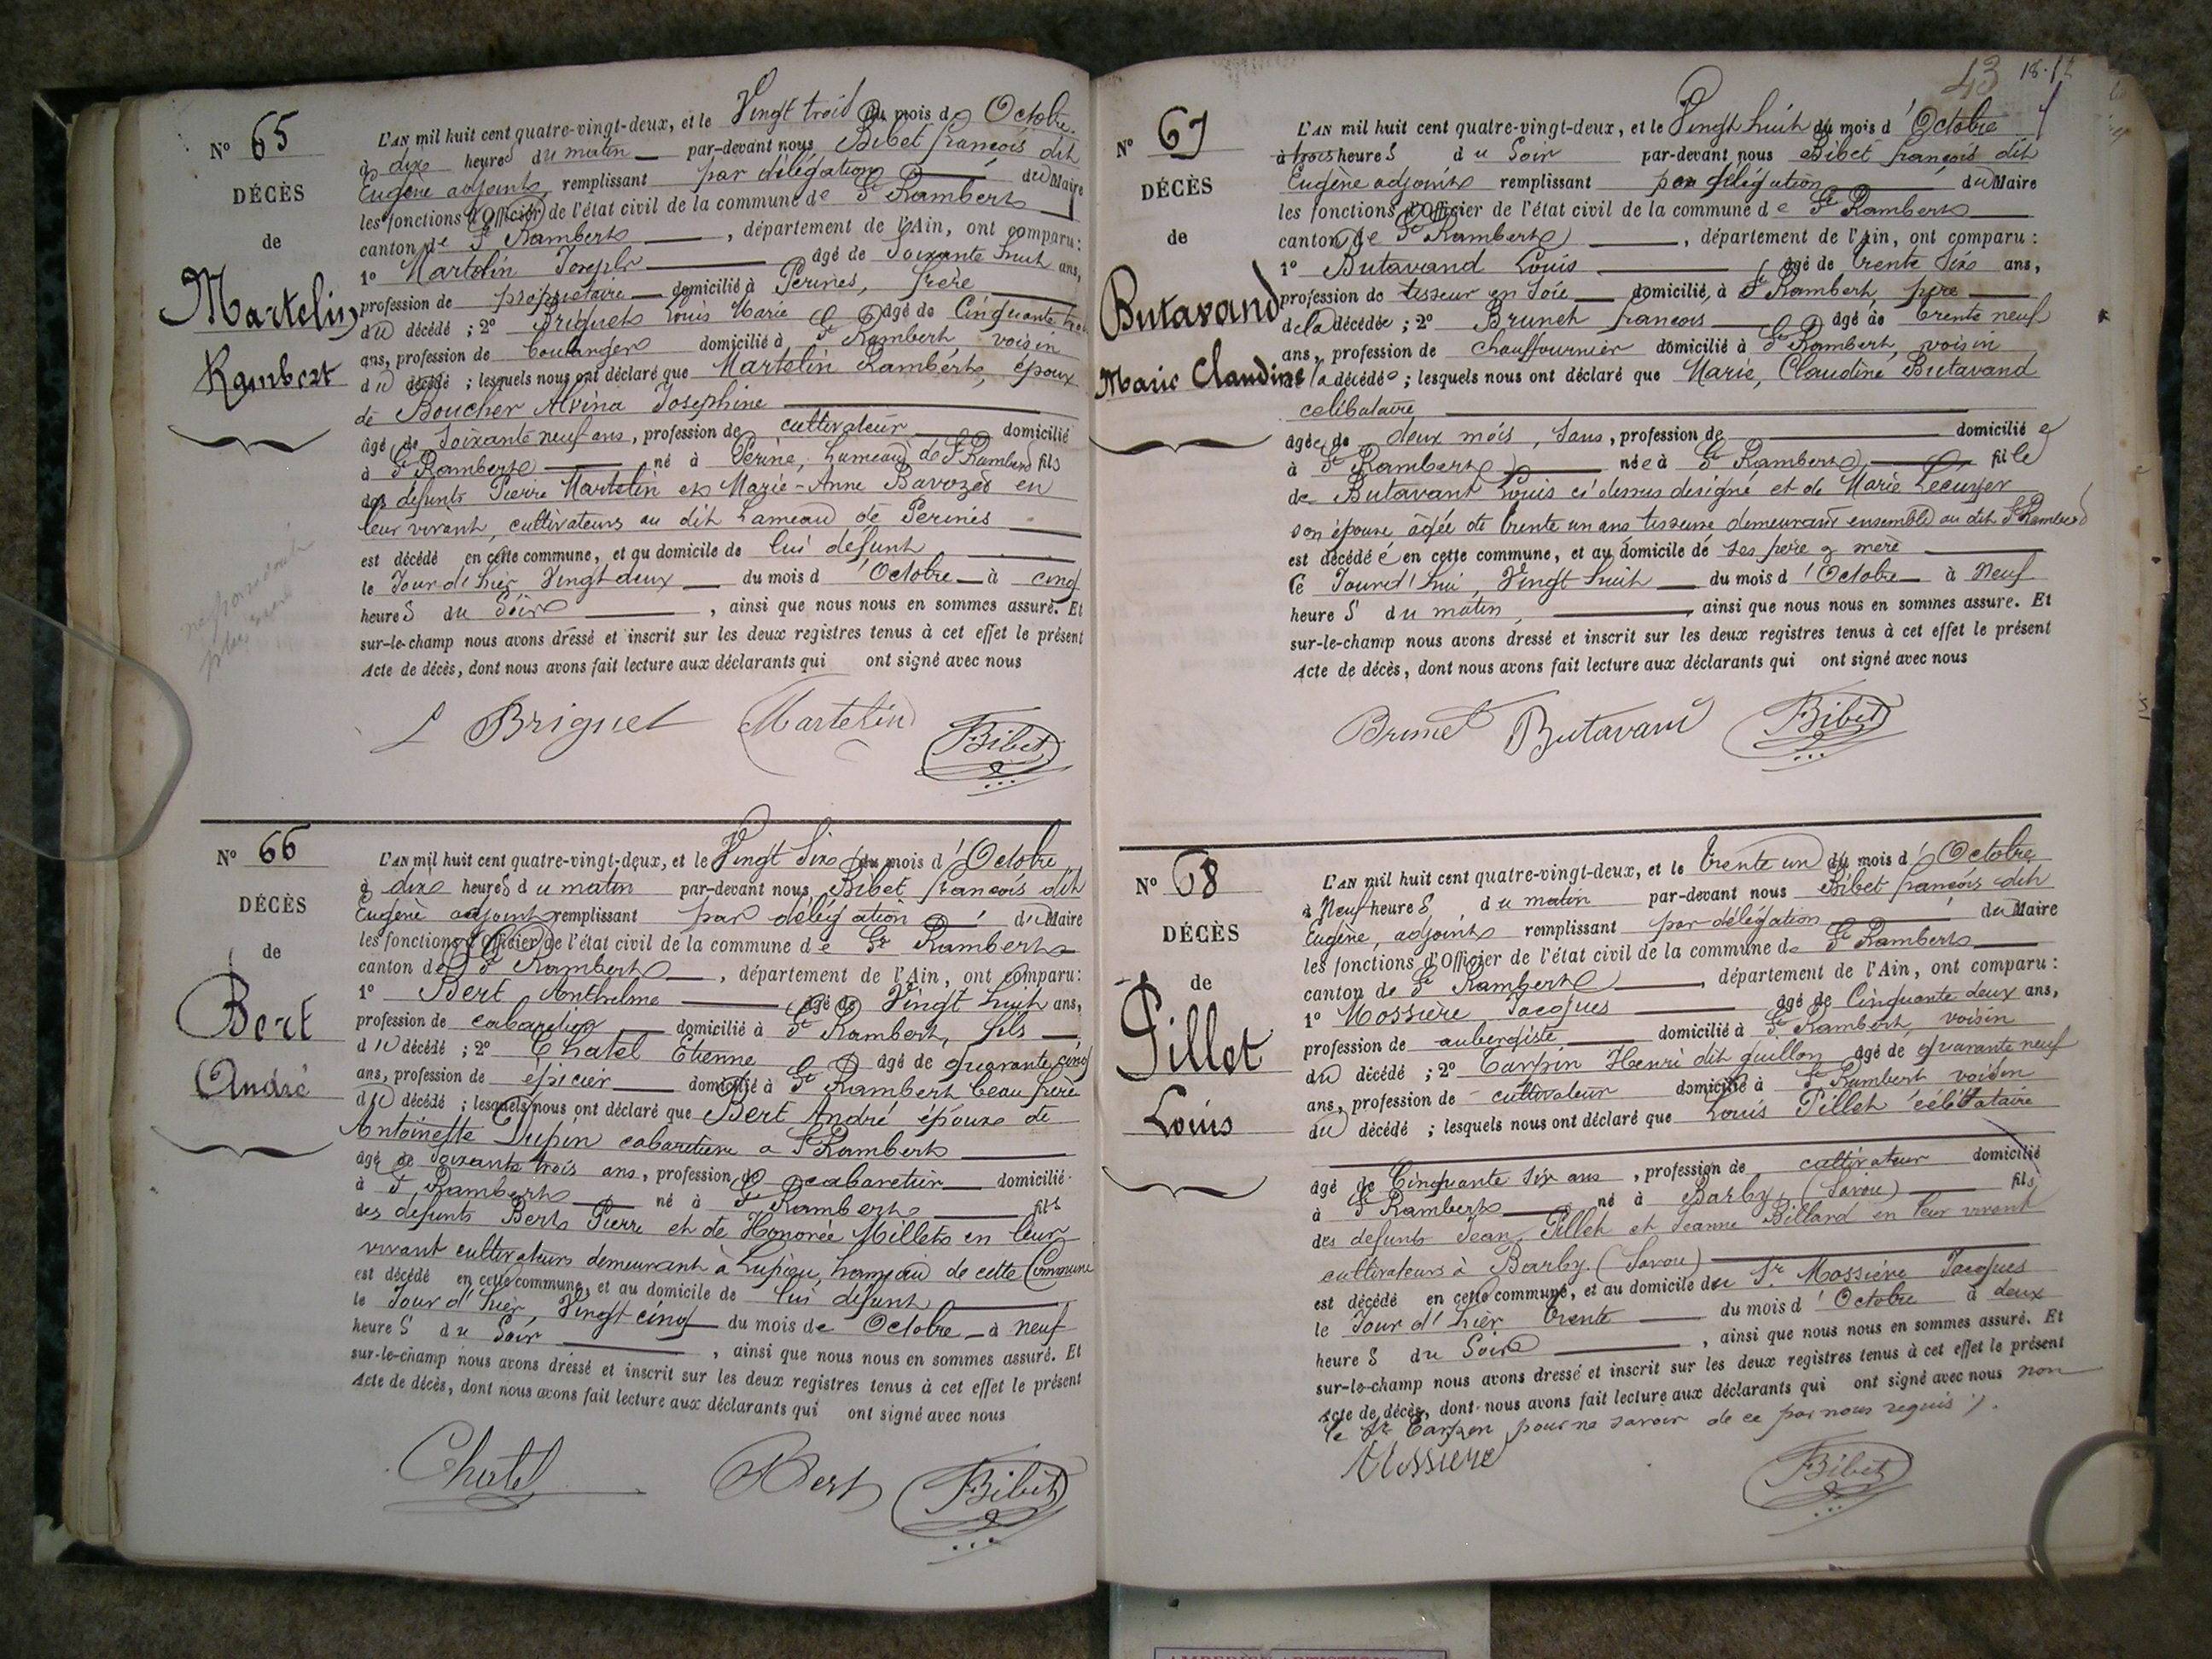 N° 65
DÉCÈS
de
Martelin
Rambert
L'AN mil huit cent quatre-vingt-deux, et le Vingt trois du mois d'Octobre
à dix heures du matin par-devant nous Bibet françois dit
Eugène adjoint remplissant par délégation du Maire
les fonctions d'Officier de l'état civil de la commune de St Rambert
canton de St Rambert, département de l'Ain, ont comparu:
1° Martelin Joseph âgé de Soixante huit ans,
profession de propriétaire domicilié à Perines, frère
du décédé; 2° Briguet Louis Marie âgé de Cinquante trois
ans, profession de boulanger domicilié à St Rambert, voisin
du décédé; lesquels nous ont déclaré que Martelin Rambert, époux
de Boucher Alvina Josephine
âgé de Soixante neuf ans, profession de cultivateur domicilié
à St Rambert né à Perine, hameau de St Rambert fils
des défunts Pierre Martelin et Marie-Anne Bavozet en
leur vivant, cultivateurs au dit hameau de Perines
est décédé en cette commune, et au domicile de lui défunt
le Jour d'hier Vingt deux du mois d'Octobre à cinq
heures du Soir, ainsi que nous nous en sommes assuré. Et
sur-le-champ nous avons dressé et inscrit sur les deux registres tenus à cet effet le présent
Acte de décès, dont nous avons fait lecture aux déclarants qui ont signé avec nous
L Briguet Martelin Bibet
N° 66
DÉCÈS
de
Bert
André
L'AN mil huit cent quatre-vingt-deux, et le Vingt Six du mois d'Octobre
à dix heures du matin par-devant nous Bibet françois dit
Eugène adjoint remplissant par délégation du Maire
les fonctions d'Officier de l'état civil de la commune de St Rambert
canton de St Rambert, département de l'Ain, ont comparu:
1° Bert Anthelme âgé de Vingt huit ans,
profession de cabaretier domicilié à St Rambert, fils
du décédé; 2° Chatel Etienne âgé de quarante cinq
ans, profession de épicier domicilié à St Rambert beau frère
du décédé; lesquels nous ont déclaré que Bert André époux de
Antoinette Dupin cabaretière a St Rambert
âgé de Soixante trois ans, profession de cabaretier domicilié
à St Rambert né à St Rambert fils
des defunts Bert Pierre et de Honorée Millet en leur
vivant cultivateurs demeurant à Lupieu, hameau de cette Commune
est décédé en cette commune, et au domicile de lui défunt
le Jour d'hier, Vingt cinq du mois de Octobre à neuf
heures du Soir, ainsi que nous nous en sommes assuré. Et
sur-le-champ nous avons dressé et inscrit sur les deux registres tenus à cet effet le présent
Acte de décès, dont nous avons fait lecture aux déclarants qui ont signé avec nous
Chatel Bert Bibet
43
N° 67
DÉCÈS
de
Butavand
Marie Claudine
L'AN mil huit cent quatre-vingt-deux, et le Vingt huit du mois d'Octobre
à trois heures du Soir par-devant nous Bibet françois dit
Eugène adjoint remplissant par délégation du Maire
les fonctions d'Officier de l'état civil de la commune de St Rambert
canton de St Rambert, département de l'Ain, ont comparu:
1° Butavand Louis âgé de trente Six ans,
profession de tisseur en Soie domicilié à St Rambert, père
de la décédée; 2° Brunet françois âgé de trente neuf
ans, profession de chauffournier domicilié à St Rambert, voisin
de la décédée; lesquels nous ont déclaré que Marie, Claudine Butavand
celibataire
âgée de deux mois, Sans, profession de domiciliée
à St Rambert née à St Rambert fille
de Butavant Louis ci dessus designé et de Marie Lecuyer
son épouse âgée de trente un ans tisseuse demeurant ensemble au dit St Rambert
est décédée en cette commune, et au domicile de ses père & mère
le Jourd'hui, Vingt huit du mois d'Octobre à Neuf
heures du matin, ainsi que nous nous en sommes assuré. Et
sur-le-champ nous avons dressé et inscrit sur les deux registres tenus à cet effet le présent
Acte de décès, dont nous avons fait lecture aux déclarants qui ont signé avec nous
Brunet Butavand Bibet
N° 68
DÉCÈS
de
Pillet
Louis
L'AN mil huit cent quatre-vingt-deux, et le trente un du mois d'Octobre
à Neuf heures du matin par-devant nous Bibet françois dit
Eugène, adjoint remplissant par délégation du Maire
les fonctions d'Officier de l'état civil de la commune de St Rambert
canton de St Rambert, département de l'Ain, ont comparu:
1° Mossière Jacques âgé de Cinquante deux ans,
profession de aubergiste domicilié à St Rambert, voisin
du décédé; 2° Tarpin Henri dit guillon âgé de quarante neuf
ans, profession de cultivateur domicilié à St Rambert voisin
du décédé; lesquels nous ont déclaré que Louis Pillet célibataire
âgé de Cinquante Six ans, profession de cultivateur domicilié
à St Rambert né à Barby, (Savoie) fils
des defunts Jean Pillet et Jeanne Billard en leur vivant
cultivateurs à Barby. (Savoie)
est décédé en cette commune, et au domicile du Sr Mossière Jacques
le Jour d'hier trente du mois d'Octobre à deux
heures du Soir, ainsi que nous nous en sommes assuré. Et
sur-le-champ nous avons dressé et inscrit sur les deux registres tenus à cet effet le présent
Acte de décès, dont nous avons fait lecture aux déclarants qui ont signé avec nous non
le Sr Tarpin pour ne savoir de ce par nous requis
Mossiere Bibet